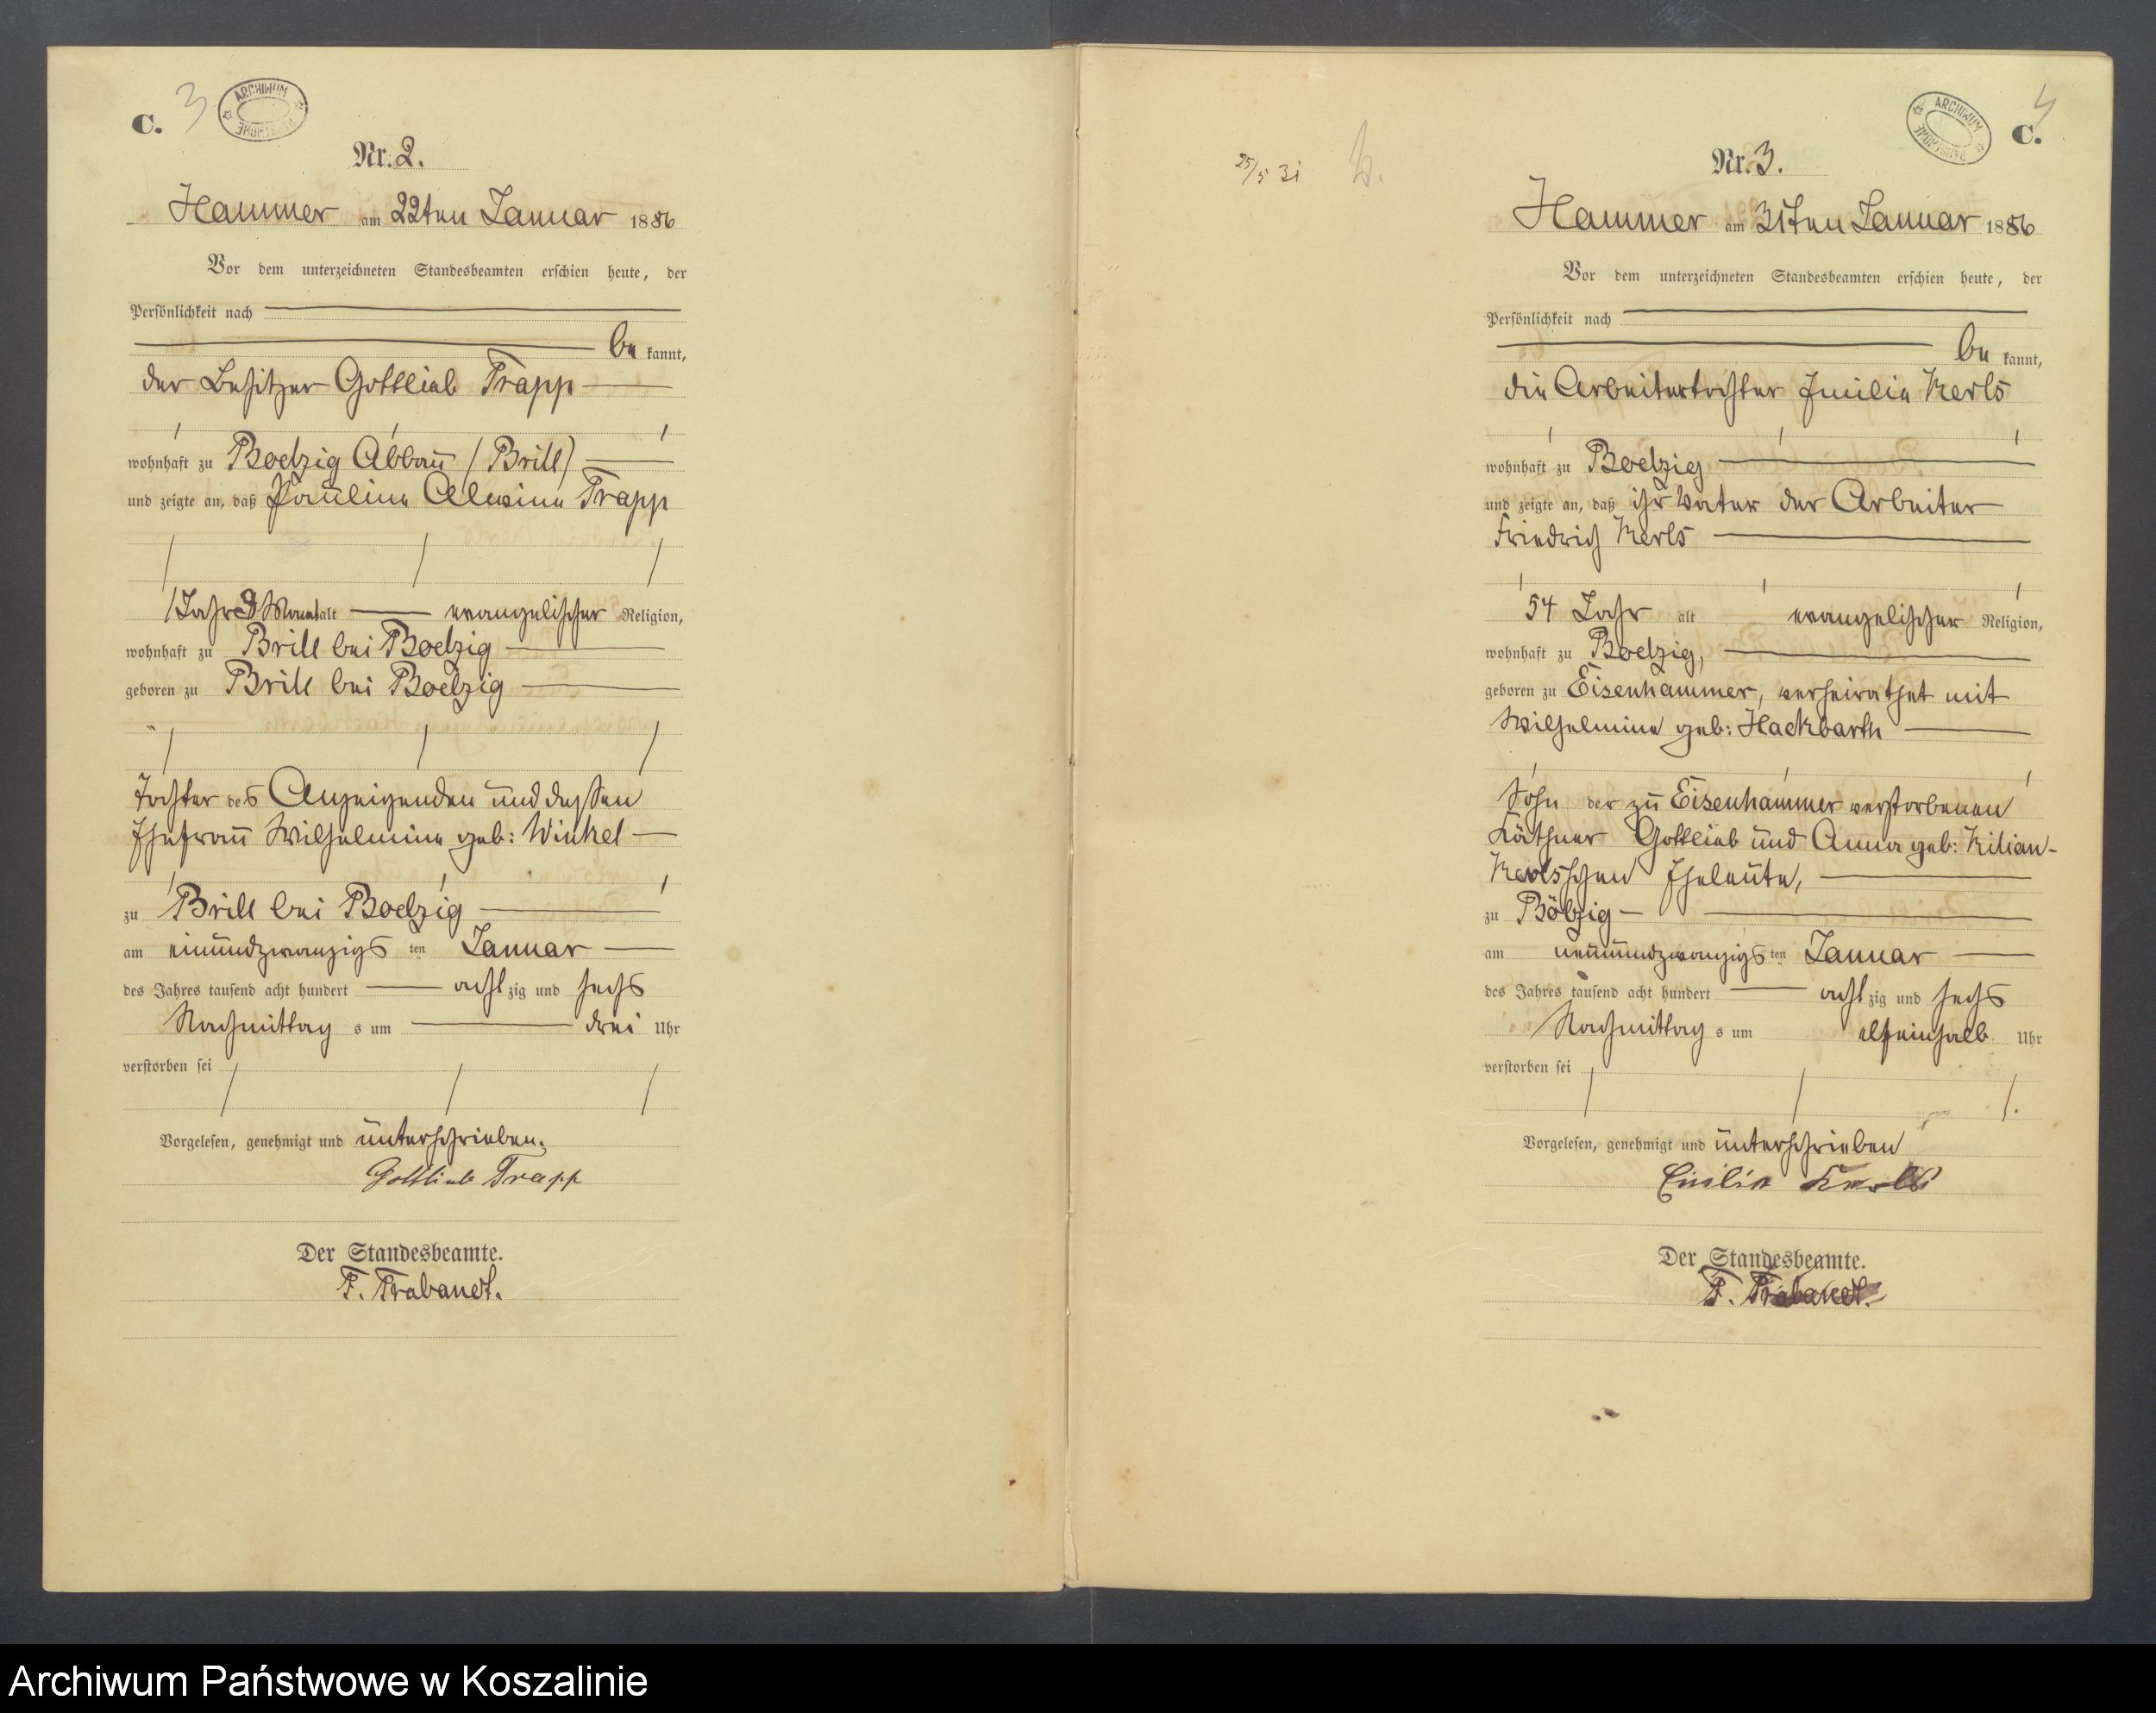 C.
3
ARCHIWUM
Nr. 2.
Hammer am 22ten Januar 1886
Vor dem unterzeichneten Standesbeamten erschien heute, der
Persönlichkeit nach
be kannt,
der Besitzer Gottlieb Trapp
wohnhaft zu Boelzig Abbau (Brill)
und zeigte an, daß Pauline Alwine Trapp
1 Jahr 9 Monat alt evangelischer Religion,
wohnhaft zu Brill bei Boelzig
geboren zu Brill bei Boelzig
Tochter des Anzeigenden und dessen
Ehefrau Wilhelmine geb: Winkel
zu Brill bei Boelzig
am einundzwanzigs ten Januar
des Jahres tausend acht hundert acht zig und sechs
Nachmittag s um drei Uhr
verstorben sei
Vorgelesen, genehmigt und unterschrieben.
Gottlieb Trapp
Der Standesbeamte.
F. Trabandt.
25/5 31
4
ARCHIWUM
C.
Nr. 3.
Hammer am 31ten Januar 1886
Vor dem unterzeichneten Standesbeamten erschien heute, der
Persönlichkeit nach
be kannt,
die Arbeitertochter Emilie Kerls
wohnhaft zu Boelzig
und zeigte an, daß ihr Vater der Arbeiter
Friedrich Kerls
54 Jahr alt evangelischer Religion,
wohnhaft zu Boelzig,
geboren zu Eisenhammer, verheirathet mit
Wilhelmine geb: Hackbarth
Sohn der zu Eisenhammer verstorbenen
Käthner Gottlieb und Anna geb: Kilian-
Kerlsschen Eheleute,
zu Bölzig
am neunundzwanzigs ten Januar
des Jahres tausend acht hundert acht zig und sechs
Nachmittag s um elfeinhalb Uhr
verstorben sei
Vorgelesen, genehmigt und unterschrieben
Emilie Kerls
Der Standesbeamte.
F. Trabandt.
Archiwum Państwowe w Koszalinie